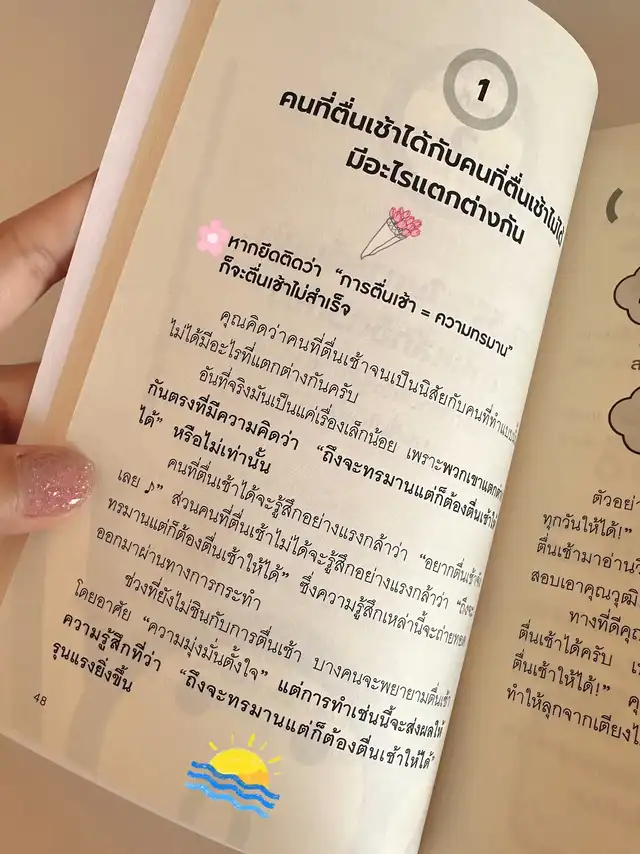 1
คนที่ตื่นเช้าได้กับคนที่ตื่นเช้าไม่ได้
มีอะไรแตกต่างกัน
หากยึดติดว่า “การตื่นเช้า = ความทรมาน”
ก็จะตื่นเช้าไม่สำเร็จ
คุณคิดว่าคนที่ตื่นเช้าจนเป็นนิสัยกับคนที่ทำแบบนั้น
ไม่ได้มีอะไรที่แตกต่างกันครับ
อันที่จริงมันเป็นแค่เรื่องเล็กน้อย เพราะพวกเขาแตกต่าง
กันตรงที่มีความคิดว่า “ถึงจะทรมานแต่ก็ต้องตื่นเช้าให้
ได้” หรือไม่เท่านั้น
คนที่ตื่นเช้าได้จะรู้สึกอย่างแรงกล้าว่า “อยากตื่นเช้า
เลย ♪” ส่วนคนที่ตื่นเช้าไม่ได้จะรู้สึกอย่างแรงกล้าว่า “ถึงจะ
ทรมานแต่ก็ต้องตื่นเช้าให้ได้” ซึ่งความรู้สึกเหล่านี้จะถ่ายทอด
ออกมาผ่านทางการกระทำ
ช่วงที่ยังไม่ชินกับการตื่นเช้า บางคนจะพยายามตื่นเช้า
โดยอาศัย “ความมุ่งมั่นตั้งใจ” แต่การทำเช่นนี้จะส่งผลให้
ความรู้สึกที่ว่า “ถึงจะทรมานแต่ก็ต้องตื่นเช้าให้ได้”
รุนแรงยิ่งขึ้น
48
ตัวอย่า
ทุกวันให้ได้!”
ตื่นเช้ามาอ่าน
สอบเอาคุณวุฒิ
ทางที่ดีคุณ
ตื่นเช้าได้ครับ
ตื่นเช้าให้ได้!”
ทำให้ลุกจากเตียง